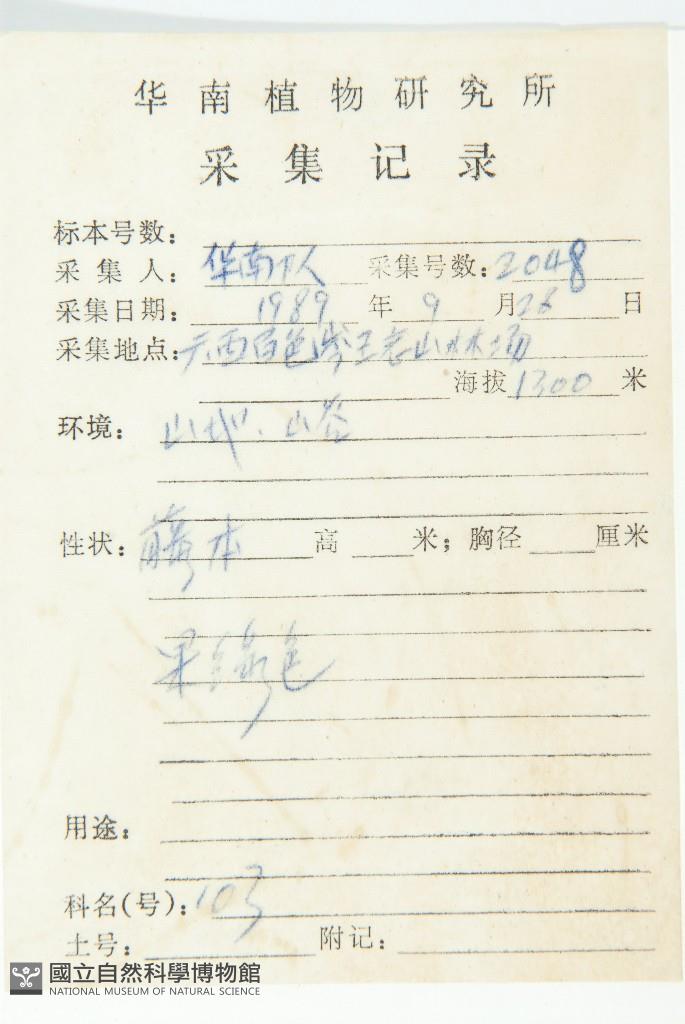 华南植物研究所
采集记录
标本号数:
采集人: 华南队 采集号数: 2048
采集日期: 1989 年 9 月 26 日
采集地点: 广西百色岑王老山林场
海拔 1300 米
环境: 山地、山谷
性状: 藤本 高 米; 胸径 厘米
果绿色
用途:
科名(号): 103
土号: 附记:
國立自然科學博物館
NATIONAL MUSEUM OF NATURAL SCIENCE